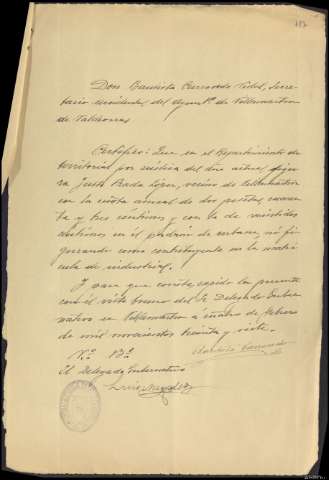 Don Bautista Vidal, Secre-
tario accidental del Ayunt.º de Villamartin
de Valdeorras
Certifico: Que en el Repartimiento de
territorial por rústica del año actual, figu-
ra Justo Prada López, vecino de Villamartin
con la cuota anual de dos pesetas cuaren-
ta y tres centimos y con la de veintidos
centimos en el padrón de urbana, no fi-
gurando como contribuyente en la matri-
cula de industrial.
Y para que conste, expido la presente
con el visto bueno del Sr Delegado Guber-
nativo en Villamartin a cuatro de febrero
de mil novecientos treinta y siete.
V.º B.º
El Delegado Gubernativo